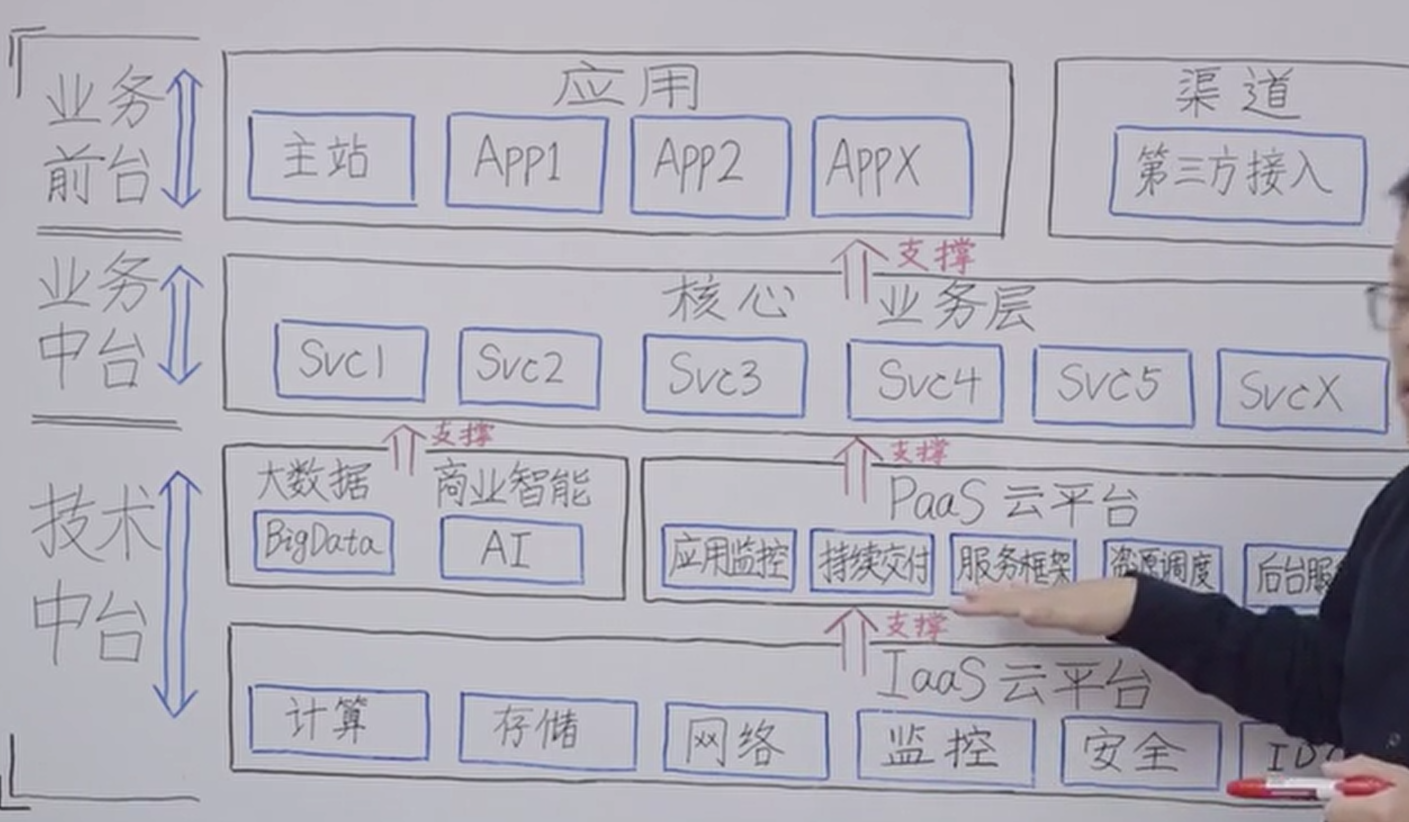 业务
前台
应用
主站
App1
App2
AppX
渠道
第三方接入
支撑
业务
中台
核心 业务层
Svc1
Svc2
Svc3
Svc4
Svc5
SvcX
支撑
支撑
技术
中台
大数据
商业智能
BigData
AI
PaaS 云平台
应用监控
持续交付
服务框架
资源调度
后台服
支撑
IaaS 云平台
计算
存储
网络
监控
安全